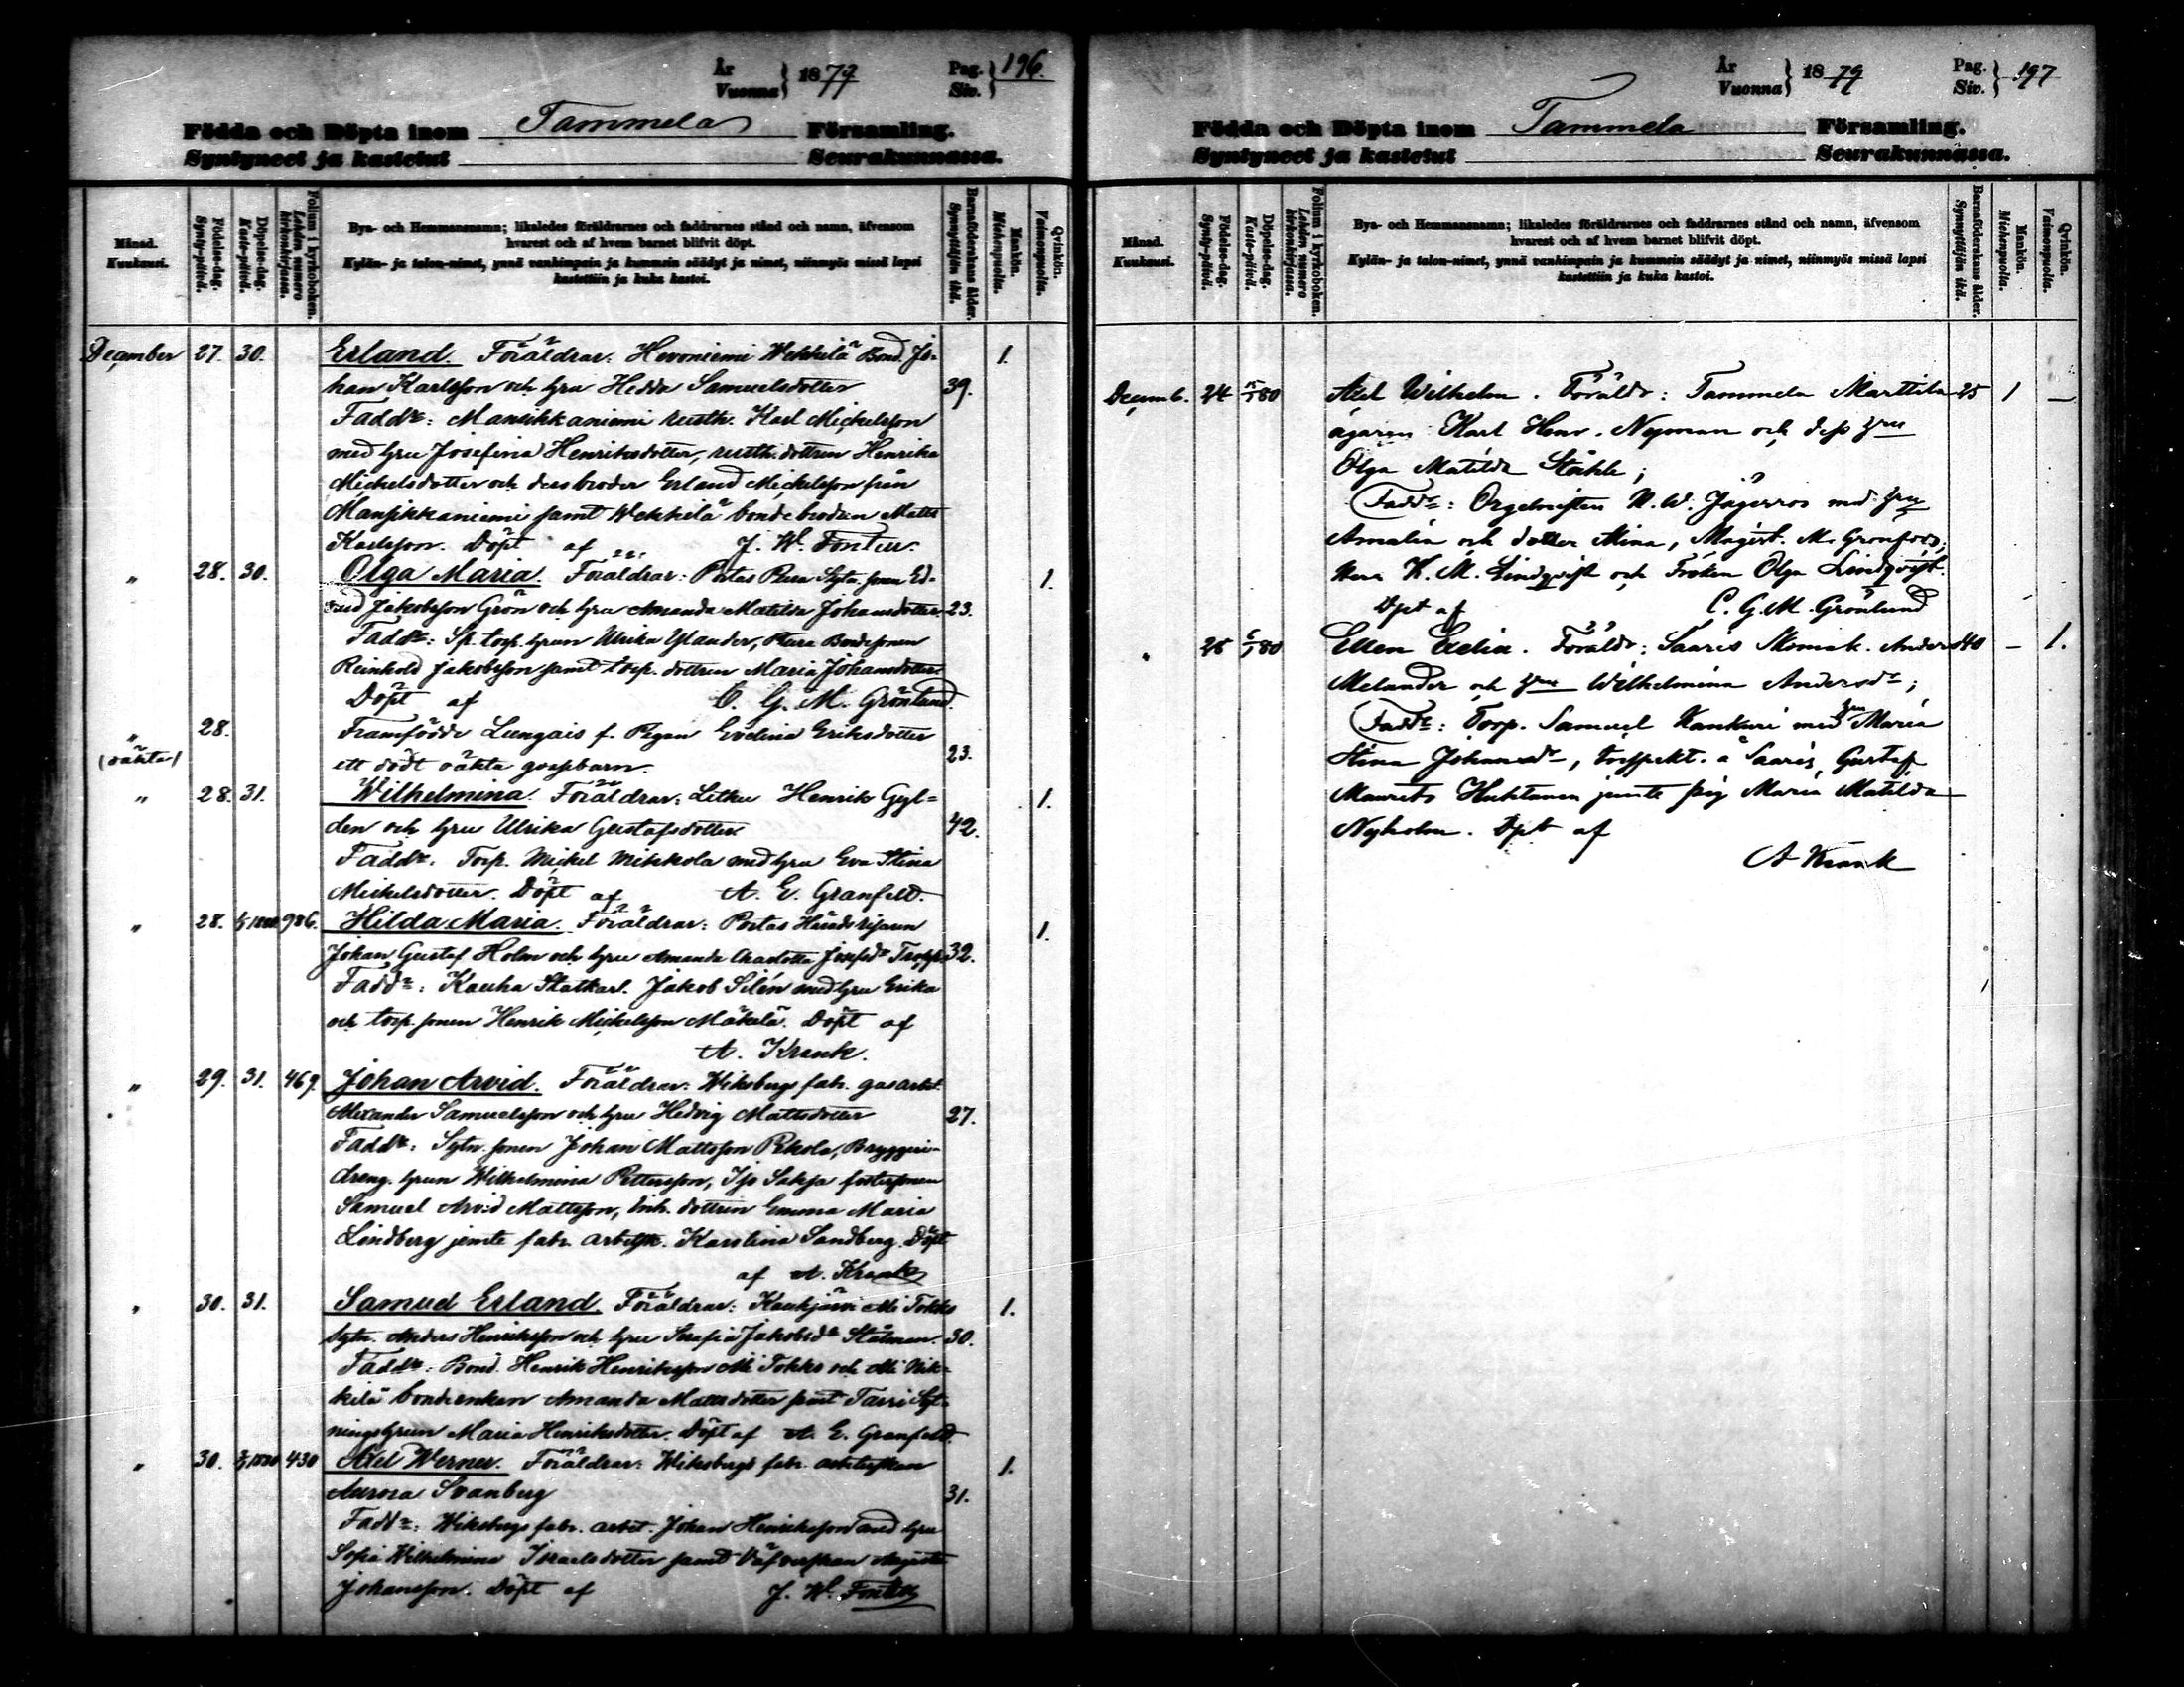 År Vuonna } 1879 Pag. Siv. } 196.
Födda och Döpta inom Tammela Församling.
Syntyneet ja kastetut Seurakunnassa.
Månad. Kuukausi.
Födelse-dag. Synty-päivä.
Döpelse-dag. Kaste-päivä.
Folium i kyrkoboken. Lehden numero kirkonkirjassa.
Bya- och Hemmansnamn; likaledes föräldrarnes och faddrarnes stånd och namn, äfvensom
hvarest och af hvem barnet blifvit döpt.
Kylän- ja talon-nimet, ynnä vanhimpain ja kummein säädyt ja nimet, niinmyös missä lapsi
kastettiin ja kuka kastoi.
Barnaföderskans ålder. Synnyttäjän ikä.
Mankön. Miehenpuolta.
Qvinkön. Vaimonpuolta.
December 27. 30. Erland. Föräldrar: Hevoniemi Wekkilä Bond. Jo- 1.
han Karlsson och hru Hedda Samuelsdotter 39.
Faddr: Mansikkaniemi rusth. Karl Mickelsson
med hru Josefina Henriksdotter, rusth. dottren Henrika
Mickelsdotter och dess broder Erland Mickelsson från
Mansikkaniemi samt Wekkilä bondebrodren Matts
Karlsson. Döpt af J. W. Fonteu.
" 28. 30. Olga Maria. Föräldrar: Portas Pura Sytn. sonen Ed- 1.
vard Jakobsson Grön och hru Amanda Matilda Johansdotter. 23.
Faddr: Sp. torp. hrun Ulrika Ylander, Pura Bondesonen
Reinhold Jakobsson samt torp. dottren Maria Johansdotter
Döpt af C. G. M. Grönlund.
" 28. Framfödde Lungais f. Pigan Evelina Eriksdotter
(oäkta) ett dödt oäkta gossebarn. 23.
" 28. 31. Wilhelmina. Föräldrar: Letku Henrik Gyl- 1.
den och hru Ulrika Gustafsdotter 42.
Faddr: Torp. Mickel Mikkola med hru Eva Stina
Mickelsdotter. Döpt af A. E. Granfelt.
" 28. 1/1 1880 986. Hilda Maria. Föräldrar: Portas
Johan Gustaf Holm och hru Amanda Charlotta Josefsdr 32. 1.
Faddr: Kauha Statkarl. Jakob Silén med hru Erika
och torp. sonen Henrik Mickelsson Mäkelä. Döpt af
A. Krank.
" 29. 31. 469. Johan Arvid. Föräldrar: Wiksbergs fabr. gasarbet.
Alexander Samuelsson och hru Hedvig Mattsdotter 27.
Faddr: Sytn. sonen Johan Mattsson Pekola, Bryggeri-
dreng. hrun Wilhelmina Pettersson, Ijo Sakja fostersonen
Samuel Arvid Mattsson, Inh. dottren Emma Maria
Lindberg jemte fabr. arbetsk. Karolina Sandberg. Döpt
af A. Krank
" 30. 31. Samuel Erland. Föräldrar: Kaukjärvi Ali Tokko 1.
Sytn. Anders Henriksson och hru Serafia Jakobsdr Stålman. 30.
Faddr: Bond. Henrik Henriksson Ali Tokko och Ali Nik-
kilä bondeenkan Amanda Mattsdotter samt Syt-
ningshrun Maria Henriksdotter. Döpt af A. E. Granfelt.
" 30. 1880 430 Axel Werner. Föräldrar: Wiksbergs fabr. arbeterskan 1.
Aurora Svanberg 31.
Faddr: Wiksbergs fabr. arbet. Johan Henriksson med hru
Sofia Wilhelmina Israelsdotter samt Väfverskan Augusta
Johansson. Döpt af J. W. Fonteu
År Vuonna } 1879 Pag. Siv. } 197
Födda och Döpta inom Tammela Församling.
Syntyneet ja kastetut Seurakunnassa.
Månad. Kuukausi.
Födelse-dag. Synty-päivä.
Döpelse-dag. Kaste-päivä.
Folium i kyrkoboken. Lehden numero kirkonkirjassa.
Bya- och Hemmansnamn; likaledes föräldrarnes och faddrarnes stånd och namn, äfvensom
hvarest och af hvem barnet blifvit döpt.
Kylän- ja talon-nimet, ynnä vanhimpain ja kummein säädyt ja nimet, niinmyös missä lapsi
kastettiin ja kuka kastoi.
Barnaföderskans ålder. Synnyttäjän ikä.
Mankön. Miehenpuolta.
Qvinkön. Vaimonpuolta.
Decemb. 24 80 Axel Wilhelm. Föräldr: Tammela Marttila 25 1 —
ägaren Karl Henr. Nyman och dess hru
Olga Matilda Ståhle;
Faddr: Orgelnisten N. W. Jägerroos med hru
Amalia och dotter Mina, Magist. M. Gronfors,
Herr K. M. Lindqvist och Fröken Olga Lindqvist.
Dpt af C. G. M. Grönlund
" 28 80 Ellen Evelin. Föräldr: Saaris Skomak. Anders 40 — 1.
Melander och hru Wilhelmina Andersdr;
Faddr: Torp. Samuel Kankuri med hru Maria
Stina Johansdr, Inspekt. å Saaris, Gustaf
Maurits Huhtanen jemte pig Maria Matilda
Nyholm. Dpt af
A Krank